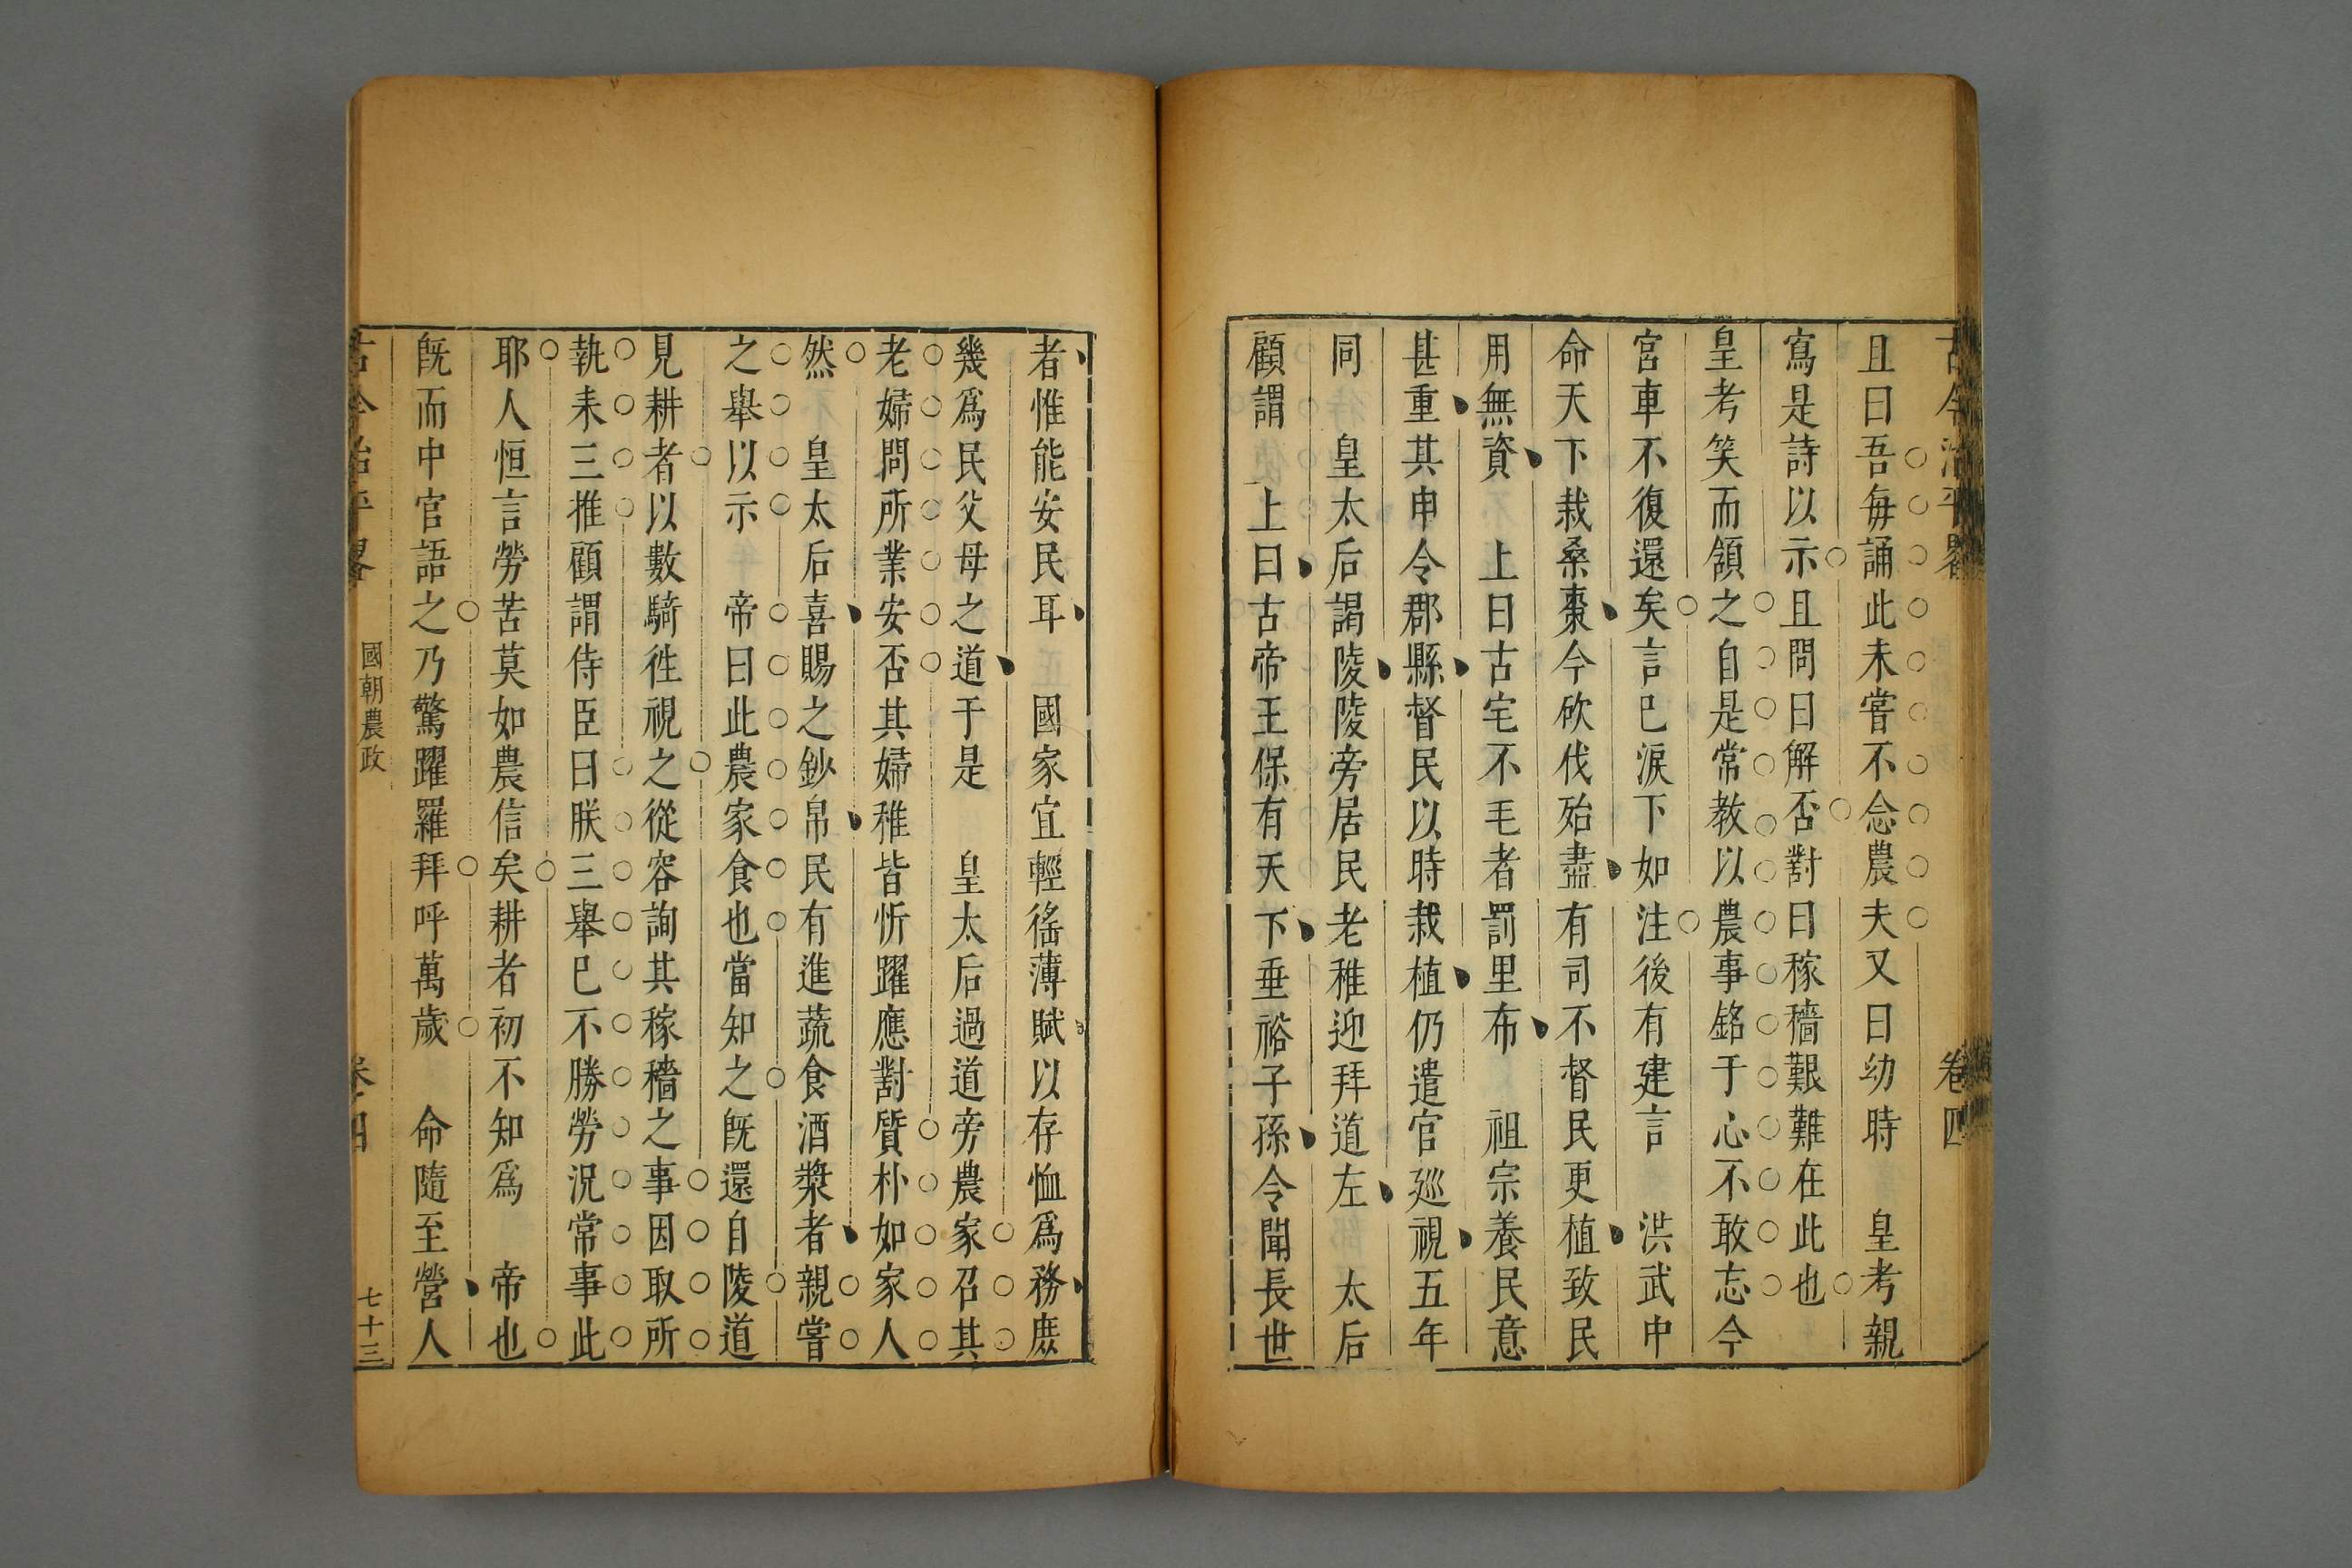 古今治平畧 卷四
且曰吾每誦此未嘗不念農夫又曰幼時 皇考親
寫是詩以示且問曰解否對曰稼穡艱難在此也
皇考笑而頷之自是常教以農事銘于心不敢忘今
宮車不復還矣言已淚下如注後有建言 洪武中
命天下栽桑棗今砍伐殆盡有司不督民更植致民
用無資 上曰古宅不毛者罰里布 祖宗養民意
甚重其申令郡縣督民以時栽植仍遣官廵視五年
同 皇太后謁陵陵旁居民老稚迎拜道左 太后
顧謂 上曰古帝王保有天下垂裕子孫令聞長世
者惟能安民耳 國家宜輕徭薄賦以存恤爲務庶
幾爲民父母之道于是 皇太后過道旁農家召其
老婦問所業安否其婦稚皆忻躍應對質朴如家人
然 皇太后喜賜之鈔帛民有進蔬食酒漿者親嘗
之舉以示 帝曰此農家食也當知之旣還自陵道
見耕者以數騎徃視之從容詢其稼穡之事因取所
執耒三推顧謂侍臣曰朕三舉已不勝勞況常事此
耶人恒言勞苦莫如農信矣耕者初不知爲 帝也
旣而中官語之乃驚躍羅拜呼萬歲 命隨至營人
古今治平畧 國朝農政 卷四 七十三